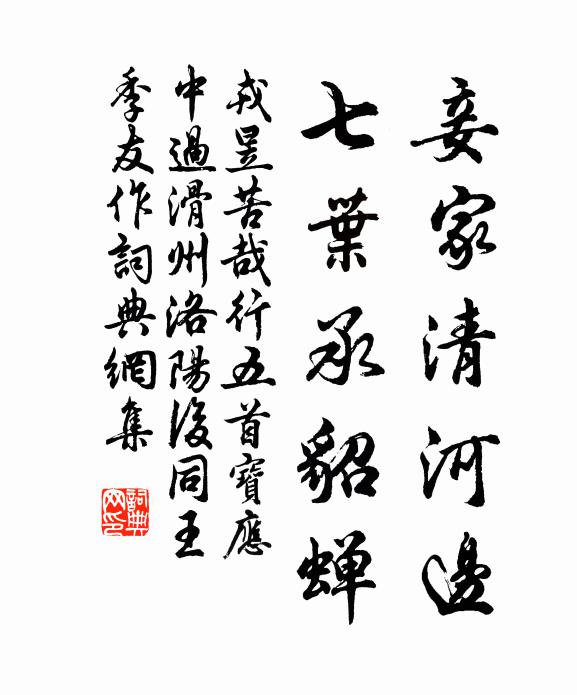 妾家清河邊
七葉承貂蝉
戎昱苦哉行五首寶應
中過滑州洛陽後同王
季友作詞典網集
詞典网印